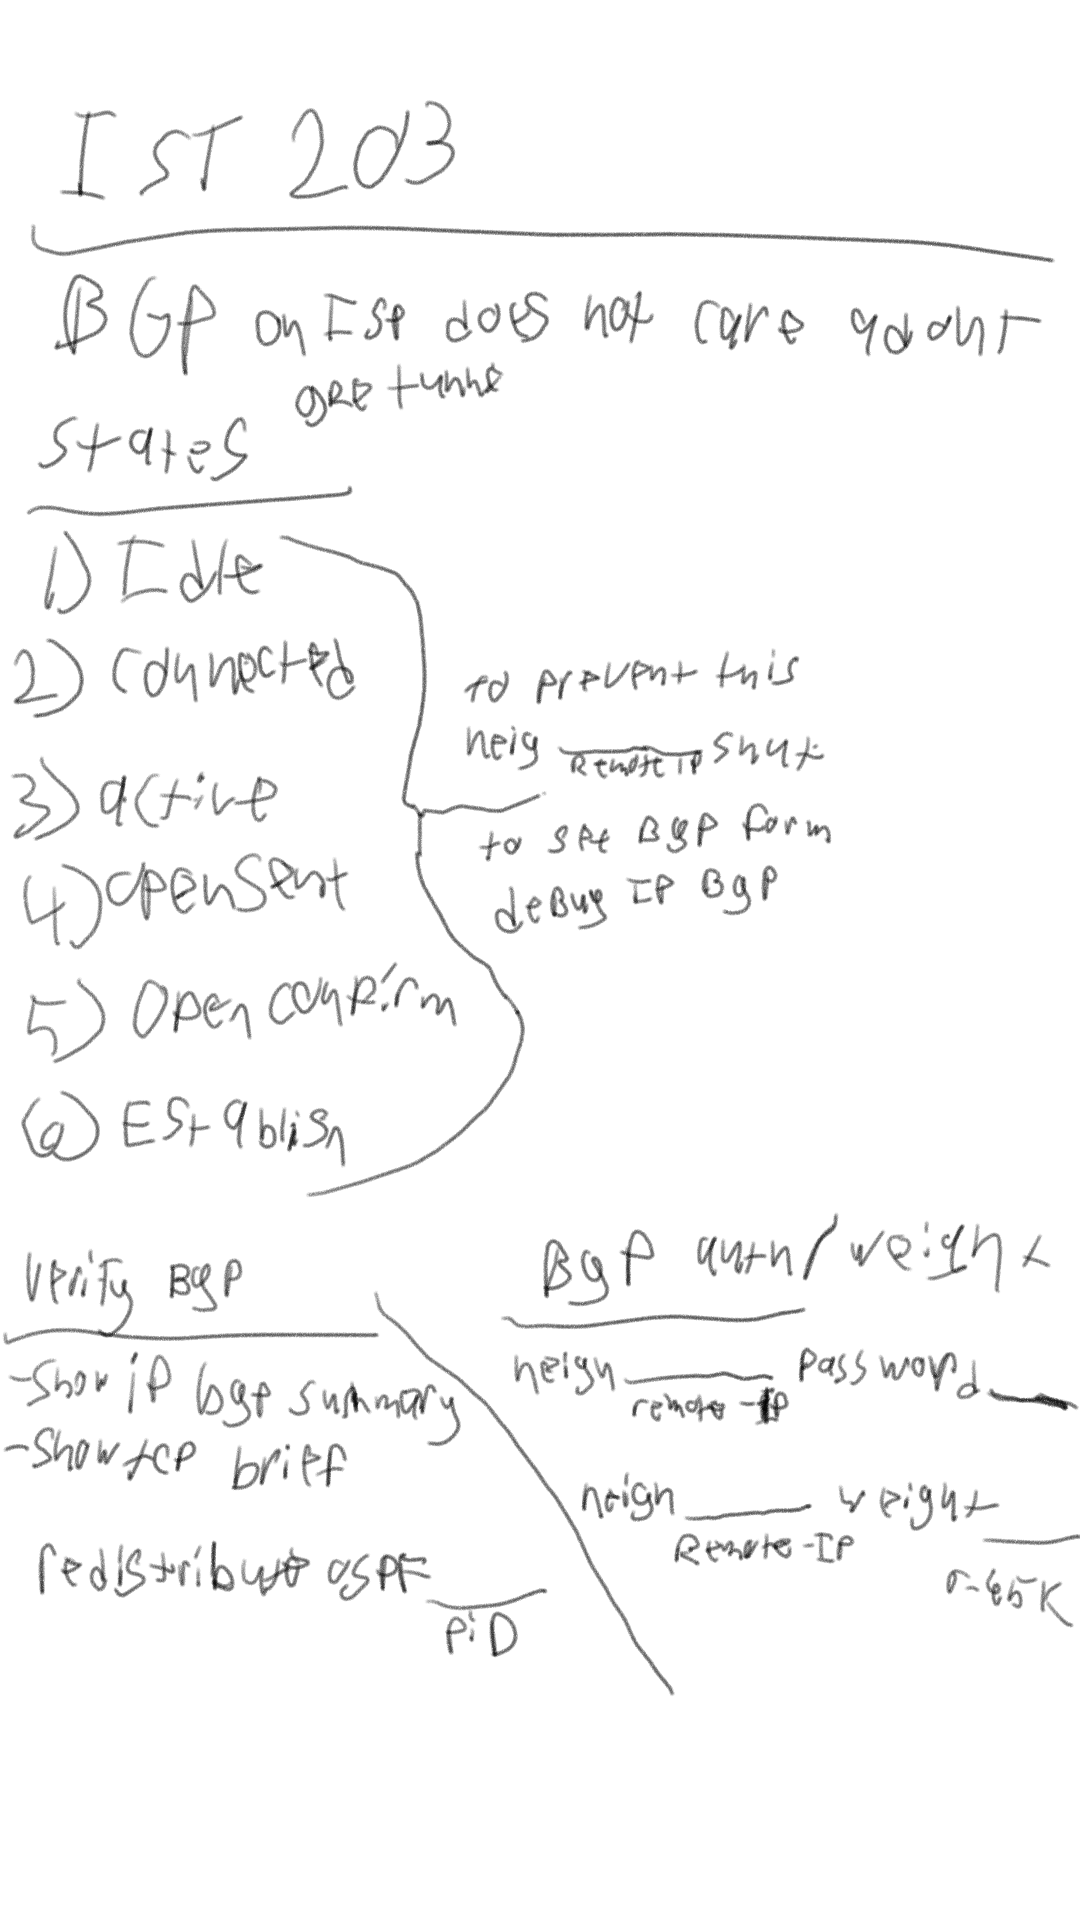 IST 203
BGP on ISP does not care about
gRE tunne
states
1) Idle
2) connected
3) active
4) opensent
5) Open confirm
6) Establish
to prevent this
neig ______ shut
Remote IP
to see BgP form
deBug IP BgP
Verify BgP
-Show iP bgp summary
-Show tcp brief
redistribute OSPF ______
PiD
BgP auth/weight
neigh ______ password ____
remote-IP
neigh ______ weight ____
Remote-IP
0-65K